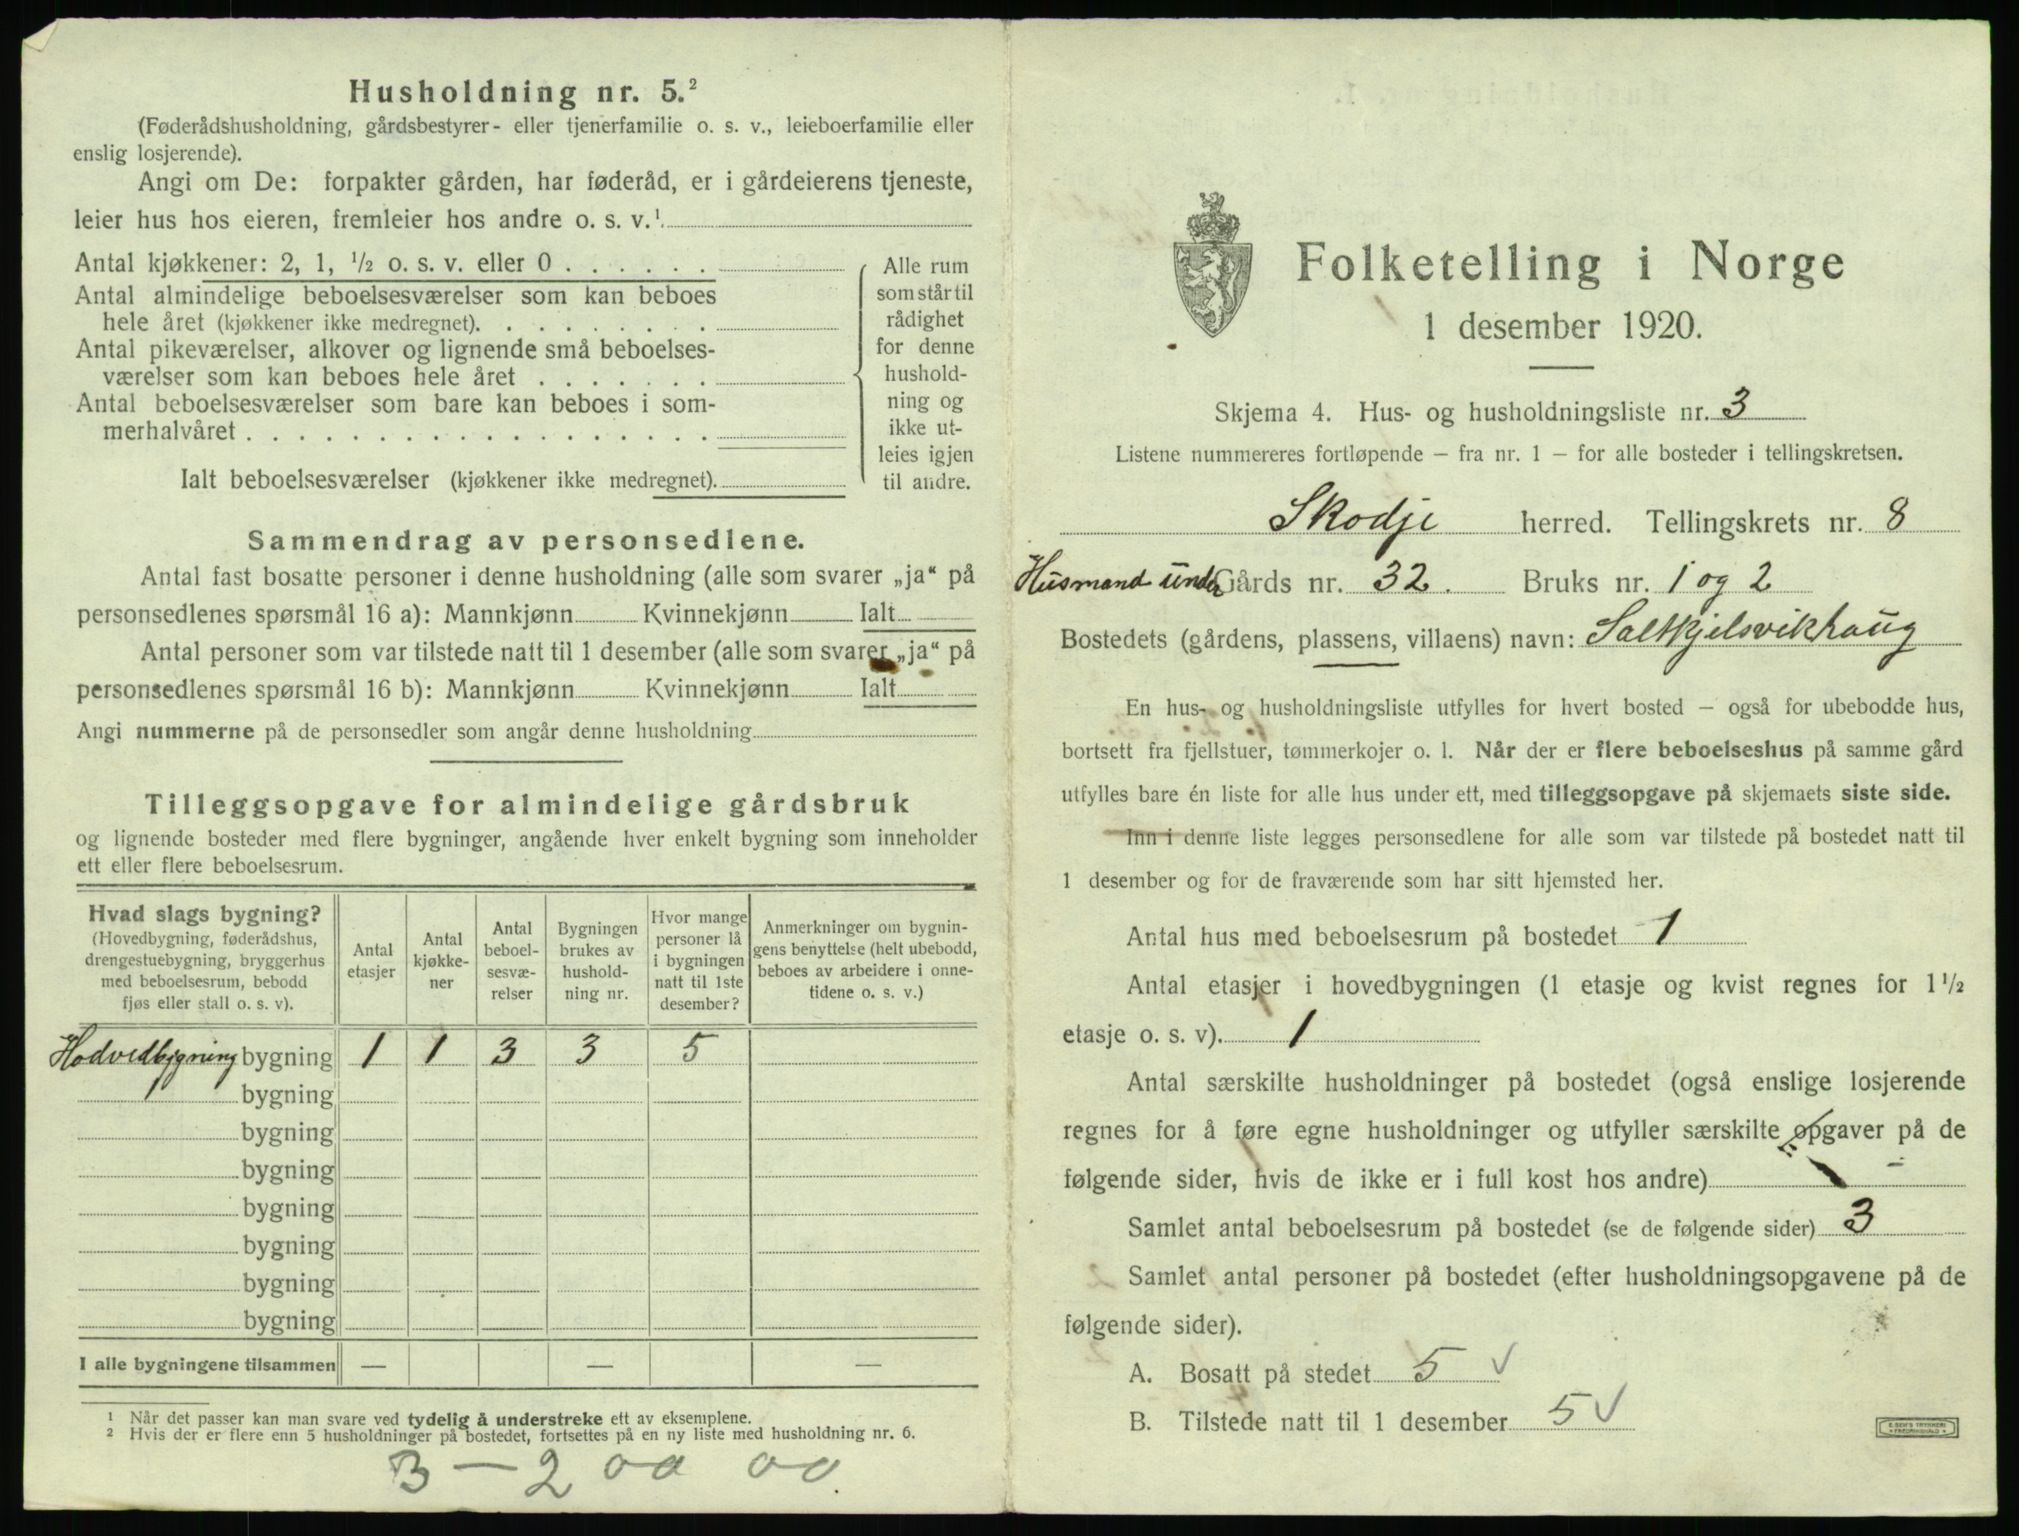 Husholdning nr. 5.²
(Føderådshusholdning, gårdsbestyrer- eller tjenerfamilie o. s. v., leieboerfamilie eller
enslig losjerende).
Angi om De: forpakter gården, har føderåd, er i gårdeierens tjeneste,
leier hus hos eieren, fremleier hos andre o. s. v.¹
Antal kjøkkener: 2, 1, ½ o. s. v. eller 0 . . . . . .
Antal almindelige beboelsesværelser som kan beboes
hele året (kjøkkener ikke medregnet). . . . . . . . .
Antal pikeværelser, alkover og lignende små beboelses-
værelser som kan beboes hele året . . . . . . .
Antal beboelsesværelser som bare kan beboes i som-
merhalvåret . . . . . . . . . . . . . . . . . .
Ialt beboelsesværelser (kjøkkener ikke medregnet).
Alle rum
som står til
rådighet
for denne
hushold-
ning og
ikke ut-
leies igjen
til andre.
Sammendrag av personsedlene.
Antal fast bosatte personer i denne husholdning (alle som svarer „ja“ på
personsedlenes spørsmål 16 a): Mannkjønn Kvinnekjønn Ialt
Antal personer som var tilstede natt til 1 desember (alle som svarer „ja“ på
personsedlenes spørsmål 16 b): Mannkjønn Kvinnekjønn Ialt
Angi nummerne på de personsedler som angår denne husholdning
Tilleggsopgave for almindelige gårdsbruk
og lignende bosteder med flere bygninger, angående hver enkelt bygning som inneholder
ett eller flere beboelsesrum.
Hvad slags bygning?
(Hovedbygning, føderådshus,
drengestuebygning, bryggerhus
med beboelsesrum, bebodd
fjøs eller stall o. s. v).
Antal
etasjer
Antal
kjøkke-
ner
Antal
beboel-
sesvæ-
relser
Bygningen
brukes av
hushold-
ning nr.
Hvor mange
personer lå
i bygningen
natt til 1ste
desember?
Anmerkninger om bygnin-
gens benyttelse (helt ubebodd,
beboes av arbeidere i onne-
tidene o. s. v.)
Hodvedbygning bygning 1 1 3 3 5
bygning
bygning
bygning
bygning
bygning
bygning
bygning
I alle bygningene tilsammen — — —
¹ Når det passer kan man svare ved tydelig å understreke ett av eksemplene.
² Hvis der er flere enn 5 husholdninger på bostedet, fortsettes på en ny liste med husholdning nr. 6.
3 — 2 00 00
Folketelling i Norge
1 desember 1920.
Skjema 4. Hus- og husholdningsliste nr. 3
Listene nummereres fortløpende – fra nr. 1 – for alle bosteder i tellingskretsen.
Skodje herred. Tellingskrets nr. 8
Husmand under Gårds nr. 32. Bruks nr. 1 og 2
Bostedets (gårdens, plassens, villaens) navn: Saltkjelsvikhaug
En hus- og husholdningsliste utfylles for hvert bosted – også for ubebodde hus,
bortsett fra fjellstuer, tømmerkojer o. l. Når der er flere beboelseshus på samme gård
utfylles bare én liste for alle hus under ett, med tilleggsopgave på skjemaets siste side.
Inn i denne liste legges personsedlene for alle som var tilstede på bostedet natt til
1 desember og for de fraværende som har sitt hjemsted her.
Antal hus med beboelsesrum på bostedet 1
Antal etasjer i hovedbygningen (1 etasje og kvist regnes for 1½
etasje o. s. v). 1
Antal særskilte husholdninger på bostedet (også enslige losjerende
regnes for å føre egne husholdninger og utfyller særskilte opgaver på de
følgende sider, hvis de ikke er i full kost hos andre)
Samlet antal beboelsesrum på bostedet (se de følgende sider) 3
Samlet antal personer på bostedet (efter husholdningsopgavene på de
følgende sider).
A. Bosatt på stedet 5 √
B. Tilstede natt til 1 desember 5 √